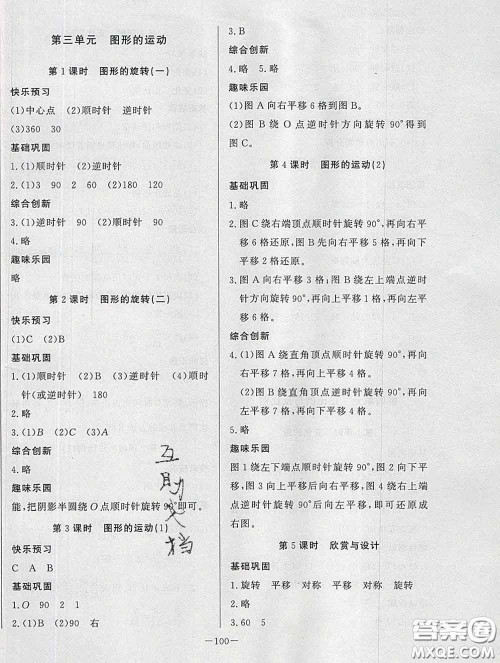 第三单元 图形的运动
第1课时 图形的旋转(一)
快乐预习
(1)中心点 (2)顺时针 逆时针
(3)360 30
基础巩固
1.(1)顺时针 (2)逆时针
2.(1)3 90 2 60 (2)180 120
综合创新
3.(1)逆时针 90 (2)顺时针 90
4.略
趣味乐园
略
第2课时 图形的旋转(二)
快乐预习
(1)C (2)B
基础巩固
1.(1)顺时针 (2)B (3)逆时针 (4)顺时
针(或逆时针) 180
2.略
3.(1)B (2)C (3)A
综合创新
4.略
趣味乐园
能,把阴影半圆绕O点顺时针旋转90°即可。
第3课时 图形的运动(1)
快乐预习
C A B
基础巩固
1.O 90 2 1
2.(1)右 (2)90 右
3.B
综合创新
4.略 5.略
趣味乐园
(1)图A向右平移6格到图B。
(2)图B绕O点逆时针方向旋转90°得到
图C。
第4课时 图形的运动(2)
基础巩固
1.略
2.图C绕右端顶点顺时针旋转90°,再向右平
移6格还原,图B先向右平移5格,再向下
平移2格还原。
3.图A向右平移3格;图B绕左上端点逆时
针方向旋转90°,再向上平移1格,再向左
平移6格。
综合创新
4.(1)图A绕直角顶点顺时针旋转90°,再向
右平移7格,再向下平移4格。
(2)图B绕直角顶点逆时针旋转90°,再向
左平移8格,再向上平移4格。
5.略
趣味乐园
图1绕左下端点顺时针旋转90°,图2向下平
移,图3向右平移后向上平移,图4绕右上端
点逆时针旋转90°后向左平移,即可以还原成
原图。
第5课时 欣赏与设计
基础巩固
1.旋转 平移 对称 平移 对称 旋转
2.略
3.60 5
互助文档
答案圈
MXQE.COM
—100—